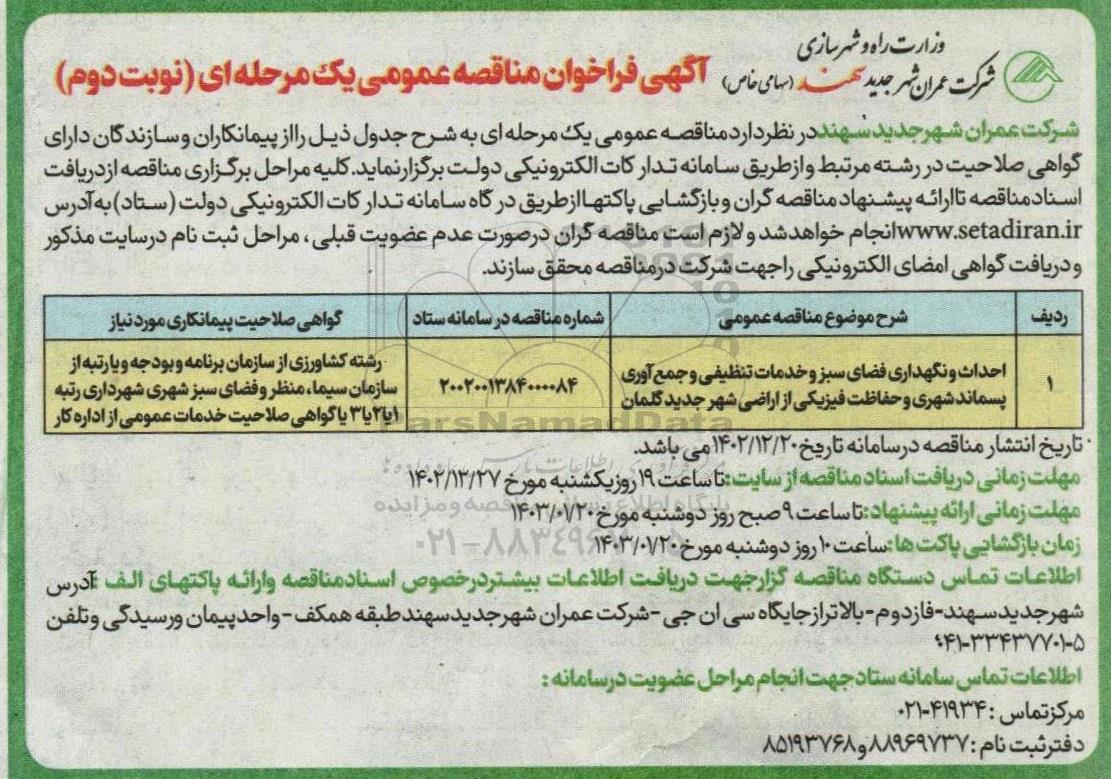 وزارت راه و شهرسازی
شرکت عمران شهر جدید سهند (سهامی خاص)
آگهی فراخوان مناقصه عمومی یک مرحله ای (نوبت دوم)
شرکت عمران شهر جدید سهند در نظر دارد مناقصه عمومی یک مرحله ای به شرح جدول ذیل را از پیمانکاران و سازندگان دارای
گواهی صلاحیت در رشته مرتبط و از طریق سامانه تدارکات الکترونیکی دولت برگزار نماید. کلیه مراحل برگزاری مناقصه از دریافت
اسناد مناقصه تا ارائه پیشنهاد مناقصه گران و بازگشایی پاکتها از طریق درگاه سامانه تدارکات الکترونیکی دولت (ستاد) به آدرس
www.setadiran.ir انجام خواهد شد و لازم است مناقصه گران در صورت عدم عضویت قبلی، مراحل ثبت نام در سایت مذکور
و دریافت گواهی امضای الکترونیکی را جهت شرکت در مناقصه محقق سازند.
ردیف	شرح موضوع مناقصه عمومی	شماره مناقصه در سامانه ستاد	گواهی صلاحیت پیمانکاری مورد نیاز
۱	احداث و نگهداری فضای سبز و خدمات تنظیفی و جمع آوری
پسماند شهری و حفاظت فیزیکی از اراضی شهر جدید گلمان
۲۰۰۲۰۰۱۳۸۴۰۰۰۰۸۴
رشته کشاورزی از سازمان برنامه و بودجه و یا رتبه از
سازمان سیما، منظر و فضای سبز شهری شهرداری رتبه
۱ یا ۲ یا ۳ یا گواهی صلاحیت خدمات عمومی از اداره کار
تاریخ انتشار مناقصه در سامانه تاریخ ۱۴۰۲/۱۲/۲۰ می باشد.
مهلت زمانی دریافت اسناد مناقصه از سایت: تا ساعت ۱۹ روز یکشنبه مورخ ۱۴۰۲/۱۲/۲۷
مهلت زمانی ارائه پیشنهاد: تا ساعت ۹ صبح روز دوشنبه مورخ ۱۴۰۳/۰۱/۲۰
زمان بازگشایی پاکت ها: ساعت ۱۰ روز دوشنبه مورخ ۱۴۰۳/۰۱/۲۰
اطلاعات تماس دستگاه مناقصه گزار جهت دریافت اطلاعات بیشتر در خصوص اسناد مناقصه و ارائه پاکتهای الف: آدرس
شهر جدید سهند - فاز دوم - بالاتر از جایگاه سی ان جی - شرکت عمران شهر جدید سهند طبقه همکف - واحد پیمان و رسیدگی و تلفن
۰۴۱-۳۳۴۳۷۷۰۱-۵
اطلاعات تماس سامانه ستاد جهت انجام مراحل عضویت در سامانه:
مرکز تماس: ۰۲۱-۴۱۹۳۴
دفتر ثبت نام: ۸۸۹۶۹۷۳۷ و ۸۵۱۹۳۷۶۸
ParsNamadData